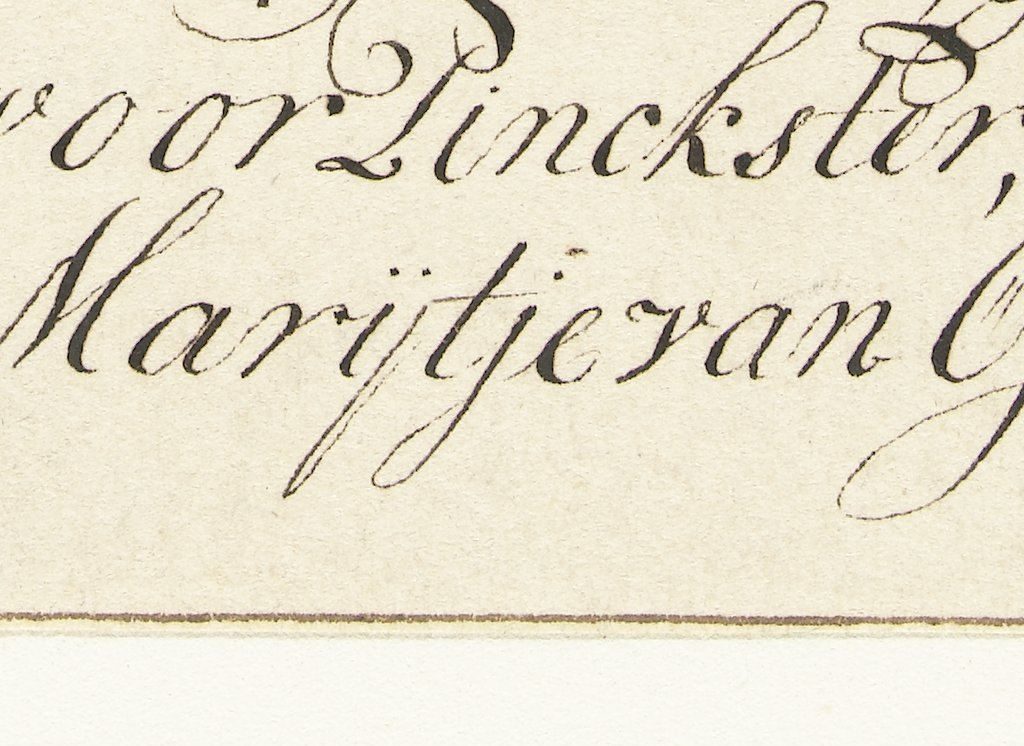 voor Pinckster,
Marijtje van